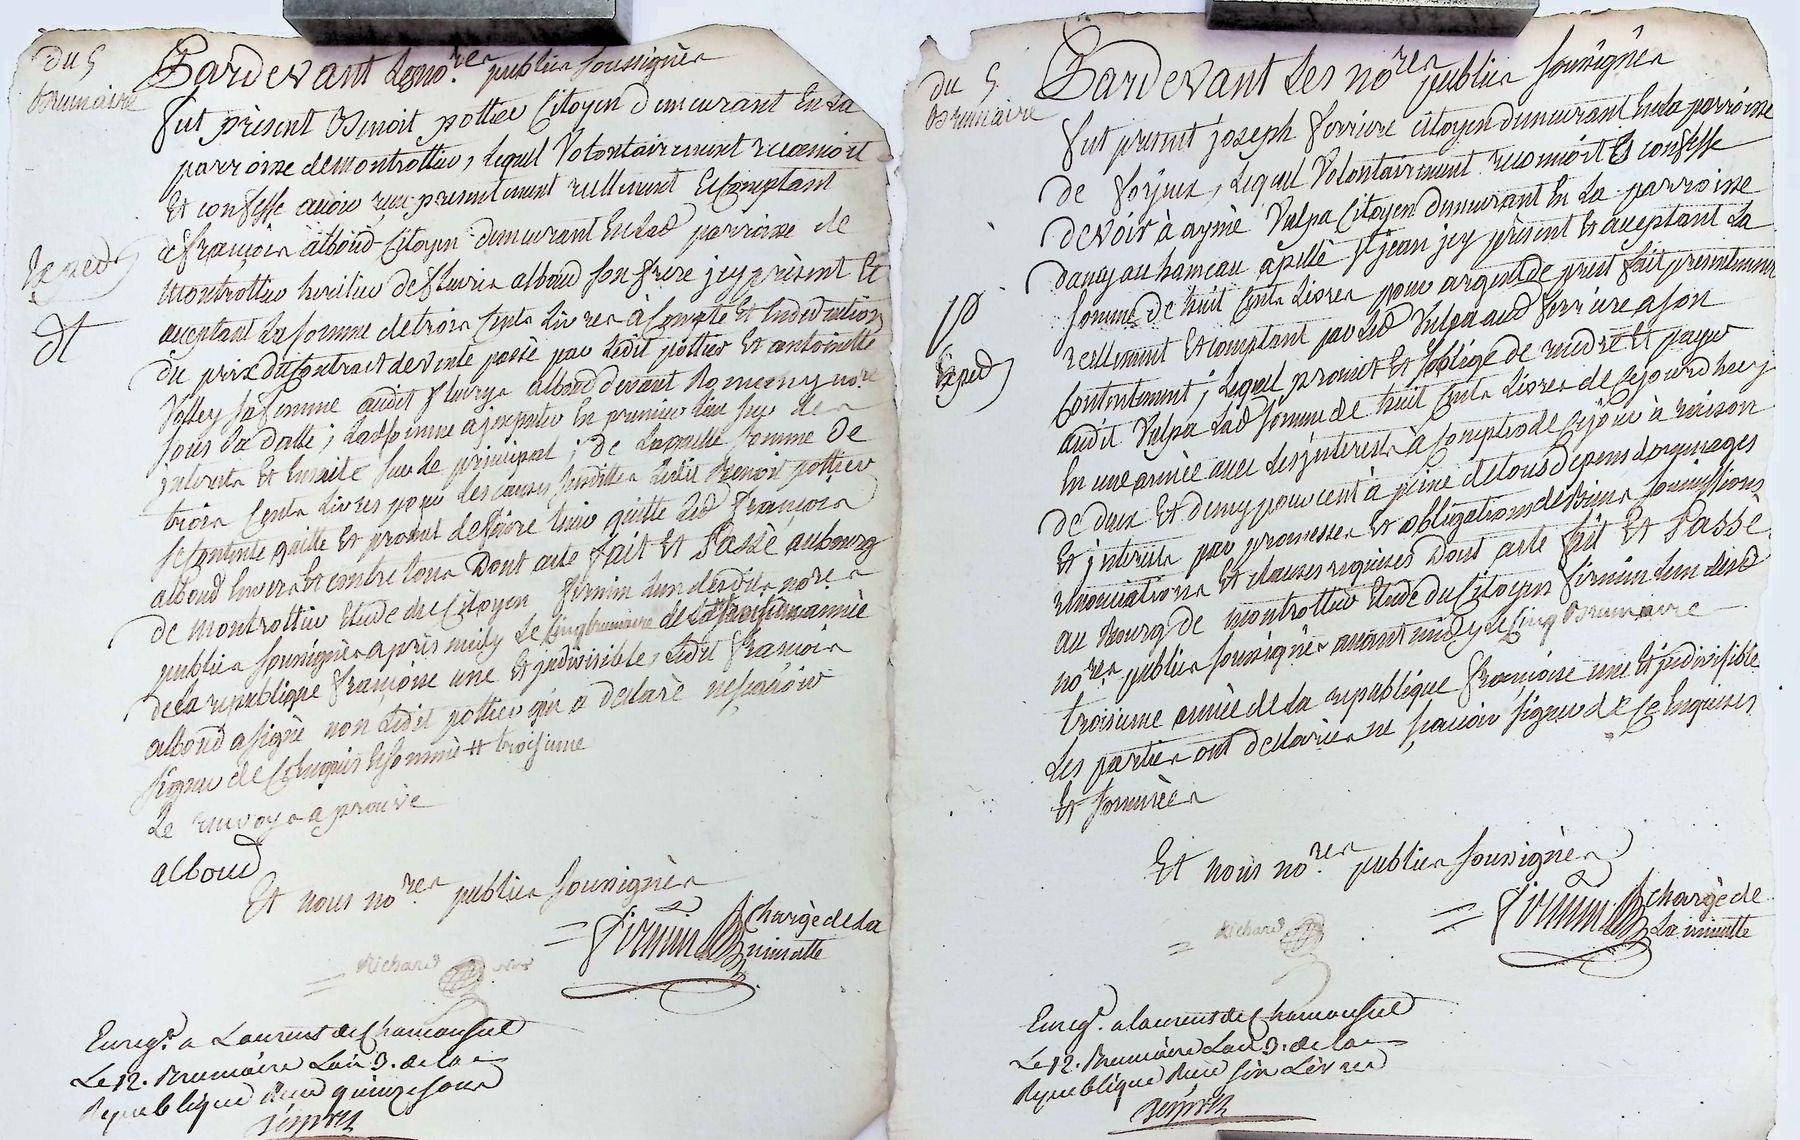 du 5
Brumaire
Pardevant Les no.res publics soussignés
fut présent Benoit pottier Citoyen demeurant En La
parroisse de montrottier, Lequel Volontairement reconnoit
Et confesse avoir reçu presentement reellement Et Comptant
de françois alboud Citoyen demeurant En Lad parroisse de
montrottier heritier de fleuris alboud son frere jcy présent Et
aceptant La somme de trois Cents Livres à Compte Et En deduction
du prix du Contract de vente passé par Ledit pottier Et antoinette
Volley sa femme audit fleurys alboud devant no.re
sous sa datte; Lad somme a jmputer En premier Lieu sur Les
jnterets Et Ensuite sur Le principal; de Laquelle somme De
trois Cents Livres pour Les causes susdittes Ledit Benoit pottier
se Contente quitte Et promet de faire tenir quitte Led François
alboud Envers Et contre tous Dont acte fait Et Passé au bourg
de montrottier Etude du Citoyen firmin L'un desdits no.res
publics soussignés après midy Le Cinq brumaire de La troisieme année
de La republique françoise une Et jndivisible, Ledit françois
alboud a signé non Ledit pottier qui a declaré ne sçavoir
signer de Ce Enquis Et sommé # troisieme
Le renvoy aprouvé
alboud
Et nous no.res publics soussignés
Firmin Chargé de La
minutte
Richard no.re
Expéd
dt
Enreg.é a Laurent de Chamousset
Le 12. Brumaire L'an 3. de la
Republique Reçu quinze sous
du 5
Brumaire
Pardevant Les no.res publics soussignés
fut présent joseph ferriere citoyen demeurant En La parroisse
de forjeux, Lequel Volontairement reconnoit Et confesse
devoir à aymé Vulpa Citoyen demeurant En La parroisse
dancy au hameau apellé St jean jcy présent Et aceptant La
somme de huit Cents Livres pour argent de prest fait presentement
reellement Et comptant par Led Vulpa aud ferriere a son
Contentement; Lequel promet Et soblige de rendre Et payer
audit Vulpa Lad somme de huit Cents Livres de Cejourdhuy
En une année avec Les jnterets à Compter de ce jour à raison
de deux Et demy pour cent à peine de tous Depens dommages
Et jnterets par promesses Et obligations de Biens soumissions
renonciations Et clauses requises Dont acte fait Et Passé
au Bourg de montrottier Etude du Citoyen firmin L'un desd
no.res publics soussignés avant midy Le Cinq Brumaire
troisieme année de La republique françoise une Et jndivisible
Les parties ont declarées ne sçavoir signer de Ce Enquises
Et sommées
Et nous no.res publics soussignés
Firmin Chargé de
La minutte
Richard
Expéd
Enreg.é a Laurent de Chamousset
Le 12. Brumaire L'an 3. de la
Republique Reçu six Livres